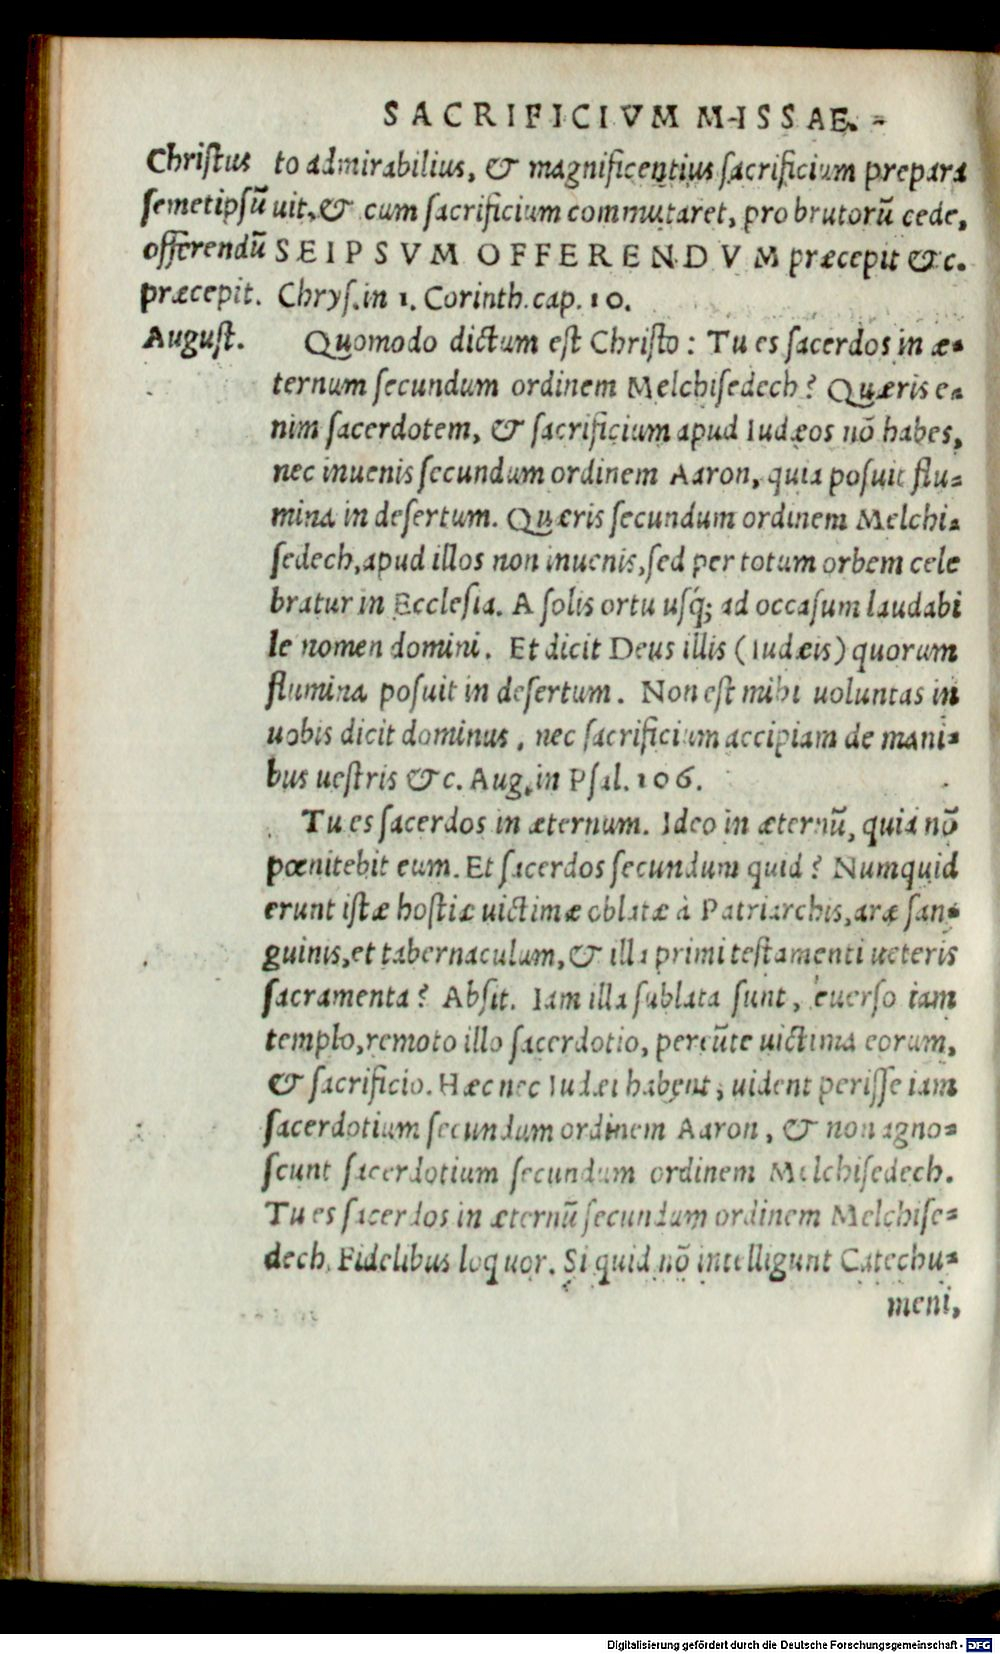 SACRIFICIVM MISSAE.
Christus
semetipsū
offerendū
præcepit.
to admirabilius, & magnificentius sacrificium prepara
uit, & cum sacrificium commutaret, pro brutorū cede,
SEIPSVM OFFERENDVM præcepit &c.
Chrys. in 1. Corinth. cap. 10.
August.
Quomodo dictum est Christo: Tu es sacerdos in æ-
ternum secundum ordinem Melchisedech? Quæris e-
nim sacerdotem, & sacrificium apud Iudæos nō habes,
nec inuenis secundum ordinem Aaron, quia posuit flu-
mina in desertum. Quæris secundum ordinem Melchi-
sedech, apud illos non inuenis, sed per totum orbem cele
bratur in Ecclesia. A solis ortu usq; ad occasum laudabi
le nomen domini. Et dicit Deus illis (Iudæis) quorum
flumina posuit in desertum. Non est mihi uoluntas in
uobis dicit dominus, nec sacrificium accipiam de mani-
bus uestris &c. Aug. in Psal. 106.
Tu es sacerdos in æternum. Ideo in æternū, quia nō
pœnitebit eum. Et sacerdos secundum quid? Numquid
erunt istæ hostiæ uictimæ oblatæ à Patriarchis, aræ san-
guinis, et tabernaculum, & illa primi testamenti ueteris
sacramenta? Absit. Iam illa sublata sunt, euerso iam
templo, remoto illo sacerdotio, pereūte uictima eorum,
& sacrificio. Hæc nec Iudæi habent, uident perisse iam
sacerdotium secundum ordinem Aaron, & non agno-
scunt sacerdotium secundum ordinem Melchisedech.
Tu es sacerdos in æternū secundum ordinem Melchise-
dech. Fidelibus loquor. Si quid nō intelligunt Catechu-
meni,
Digitalisierung gefördert durch die Deutsche Forschungsgemeinschaft - DFG